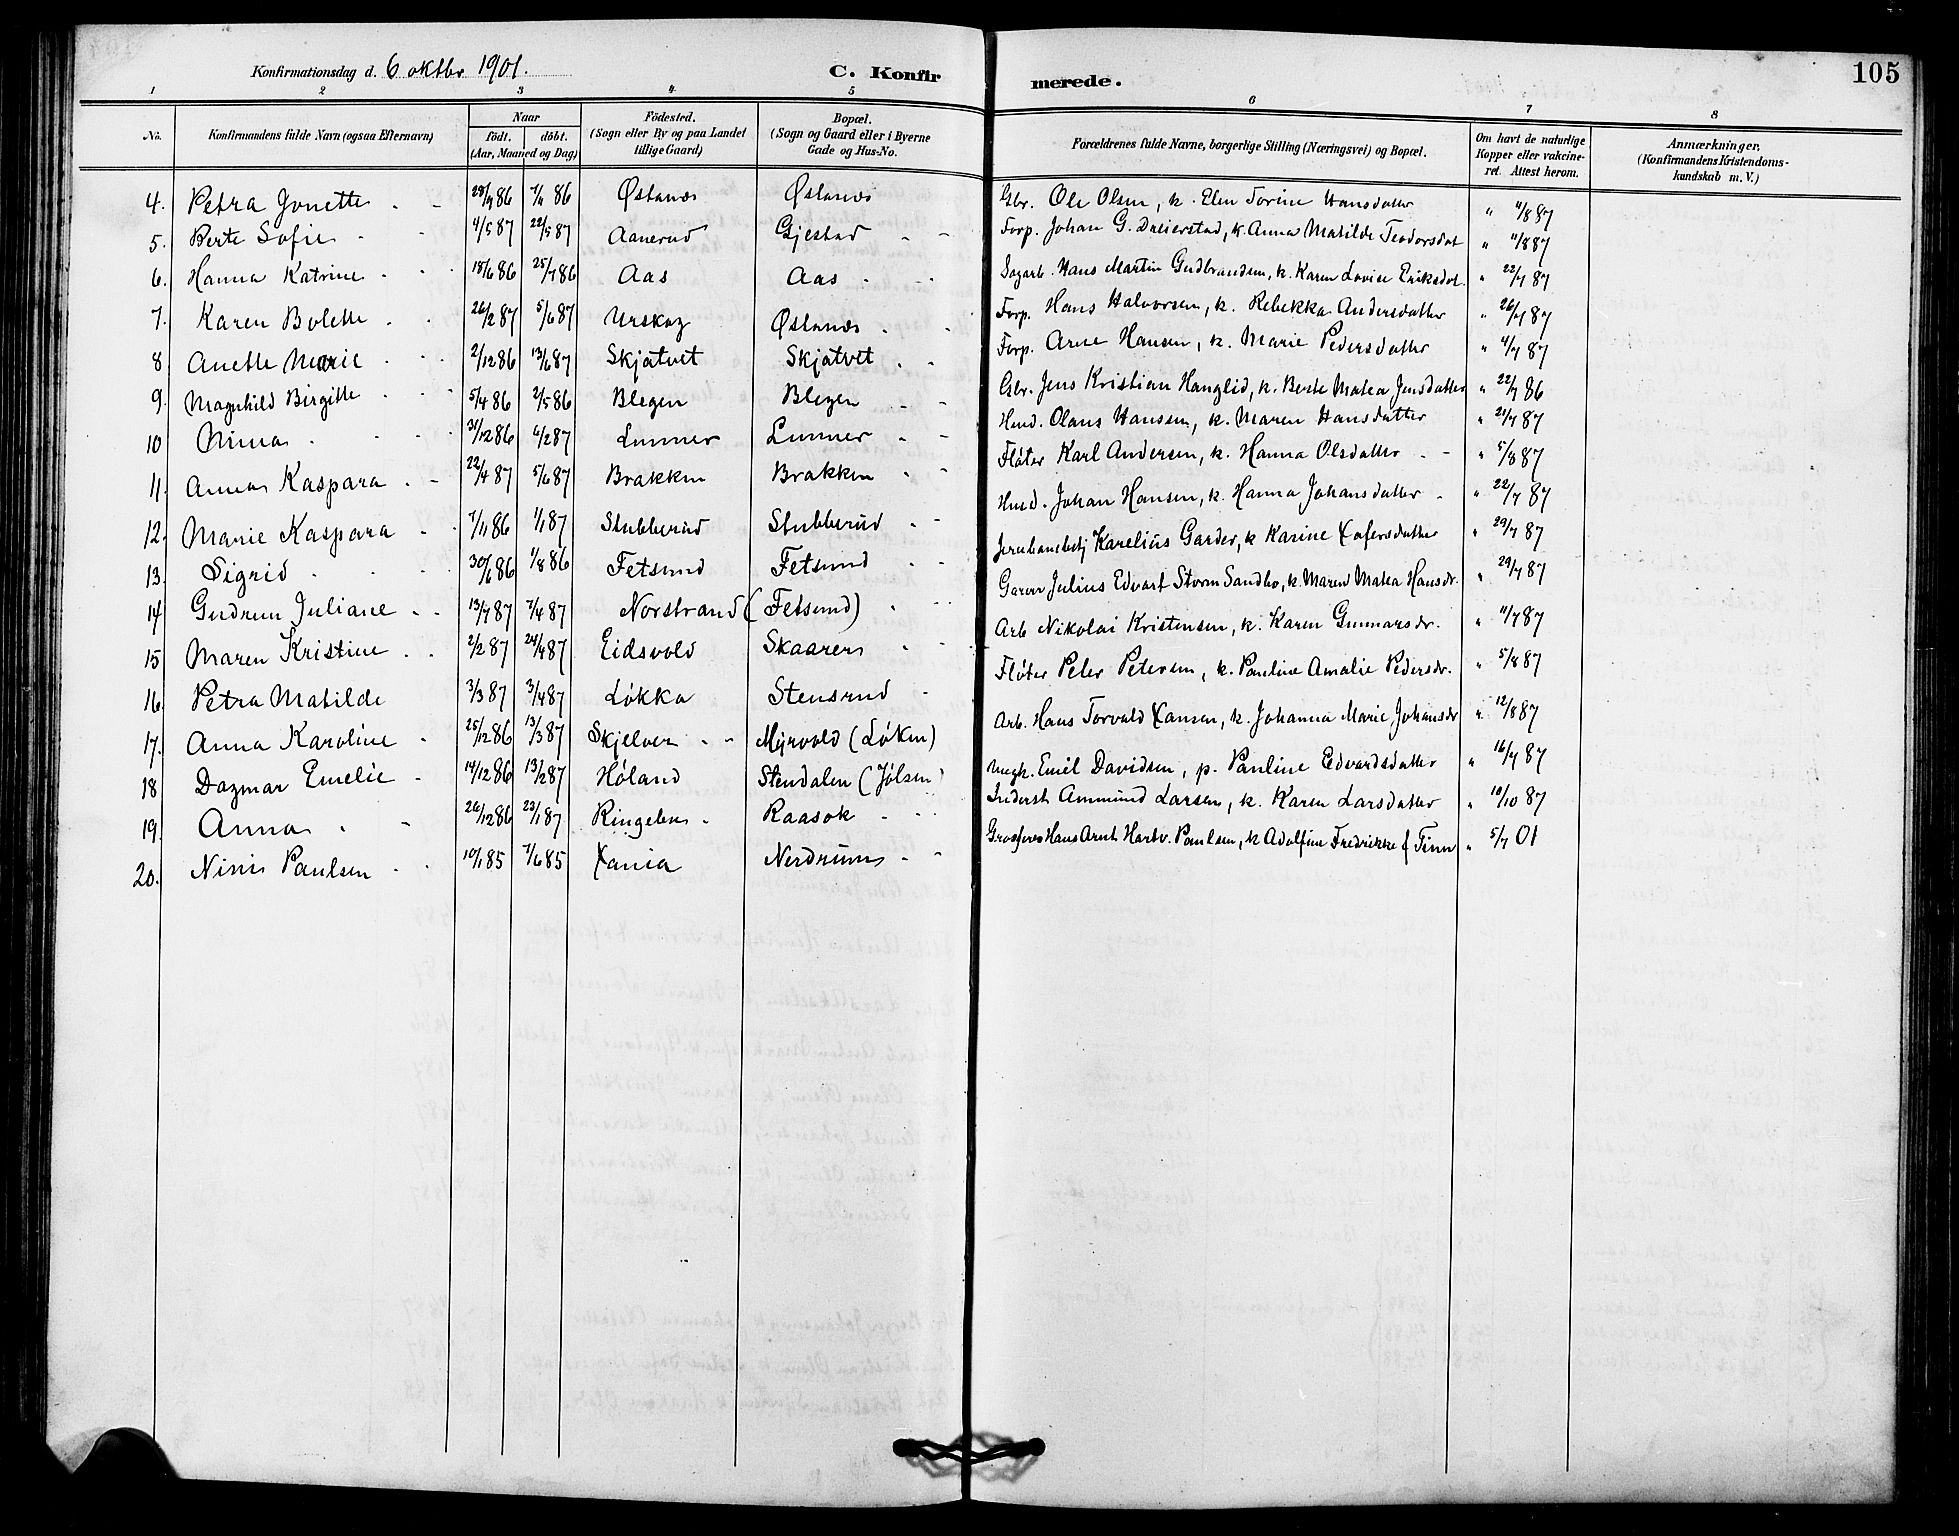 Konfirmationsdag d. 6 oktbr 1901.
C. Konfirmerede.
105
1 2 3 4 5 6 7 8
No. Konfirmandens fulde Navn (ogsaa Efternavn) Naar födt. döbt. (Aar, Maaned og Dag) Födested. (Sogn eller By og paa Landet tillige Gaard) Bopæl. (Sogn og Gaard eller i Byerne Gade og Hus-No. Forældrenes fulde Navne, borgerlige Stilling (Næringsvei) og Bopæl. Om havt de naturlige Kopper eller vakcineret. Attest herom. Anmærkninger. (Konfirmandens Kristendomskundskab m. V.)
4. Petra Jonette 86 86 Østanes Østanes Gbr. Ole Olsen, k. Elen Torine Hansdatter " 4/8 87
5. Berte Sofie 4/5 87 22/5 87 Aanerud Gjestad Forp. Johan G. Dreierstad, k. Anna Matilde Teodorsdat " 11/8 87
6. Hanna Katrine 18/6 86 25/7 86 Aas Aas Sagarb. Hans Martin Gudbrandsen, k. Karen Lovise Eriksdat. " 22/7 87
7. Karen Bolette 26/2 87 5/6 87 Urskog Østanes Forp. Hans Halvorsen, k. Rebekka Andersdatter " 26/7 87
8 Anette Marie 2/12 86 13/6 87 Skjatvet Skjatvet Forp. Arne Hansen, k. Marie Pedersdatter " 4/7 87
9. Magnhild Birgitte 5/4 86 2/5 86 Blegen Blegen Gbr. Jens Kristian Hanglid, k. Berte Matea Jensdatter " 22/7 86
10 Nima 31/12 86 4/2 87 Lunner Lunner Hmd. Olaus Hansen, k. Maren Hansdatter " 21/7 87
11. Anna Kaspara 22/4 87 5/6 87 Brakken Brakken Fløter Karl Andersen, k. Hanna Olsdatter " 5/8 87
12. Marie Kaspara 7/11 86 1/1 87 Stubberud Stubberud Hmd. Johan Hansen, k. Hanna Johansdatter " 22/7 87
13. Sigrid 30/6 86 1/8 86 Fetsund Fetsund Jernbanebetj Karelius Garder, k Karine Xofersdatter " 29/7 87
14 Gudrun Juliane 13/7 87 87 Norstrand (Fetsund) Garver Julius Edvart Storm Sandbo, k. Maren Matea Hansdr. " 29/7 87
15 Maren Kristine 2/2 87 24/4 87 Eidsvold Skaarer Arb Nikolai Kristensen, k. Karen Gunnarsdr. " 11/7 87
16 Petra Matilde 3/3 87 3/4 87 Løkka Stensrud Fløter Peter Petersen, k. Pauline Amalie Pedersdr. " 5/8 87
17. Anna Karoline 25/12 86 13/3 87 Skjelver Myrvold (Løken) Arb. Hans Torvald Xansen, k. Johanna Marie Johansdr " 12/8 87
18 Dagmar Emelie 14/12 86 13/2 87 Høland Stendalen (Jølsen) Ungk. Emil Davidsen, p. Pauline Edvardsdatter " 16/7 87
19. Anna 26/12 86 23/1 87 Ringelen Raasok Inderst Ammund Larsen, k. Karen Larsdatter " 10/10 87
20. Ninis Paulsen 10/1 85 7/6 85 Xania Nerdrum Hans Arnt Hartv. Paulsen, k Adolfine Fredrikke f Finn " 5/7 01